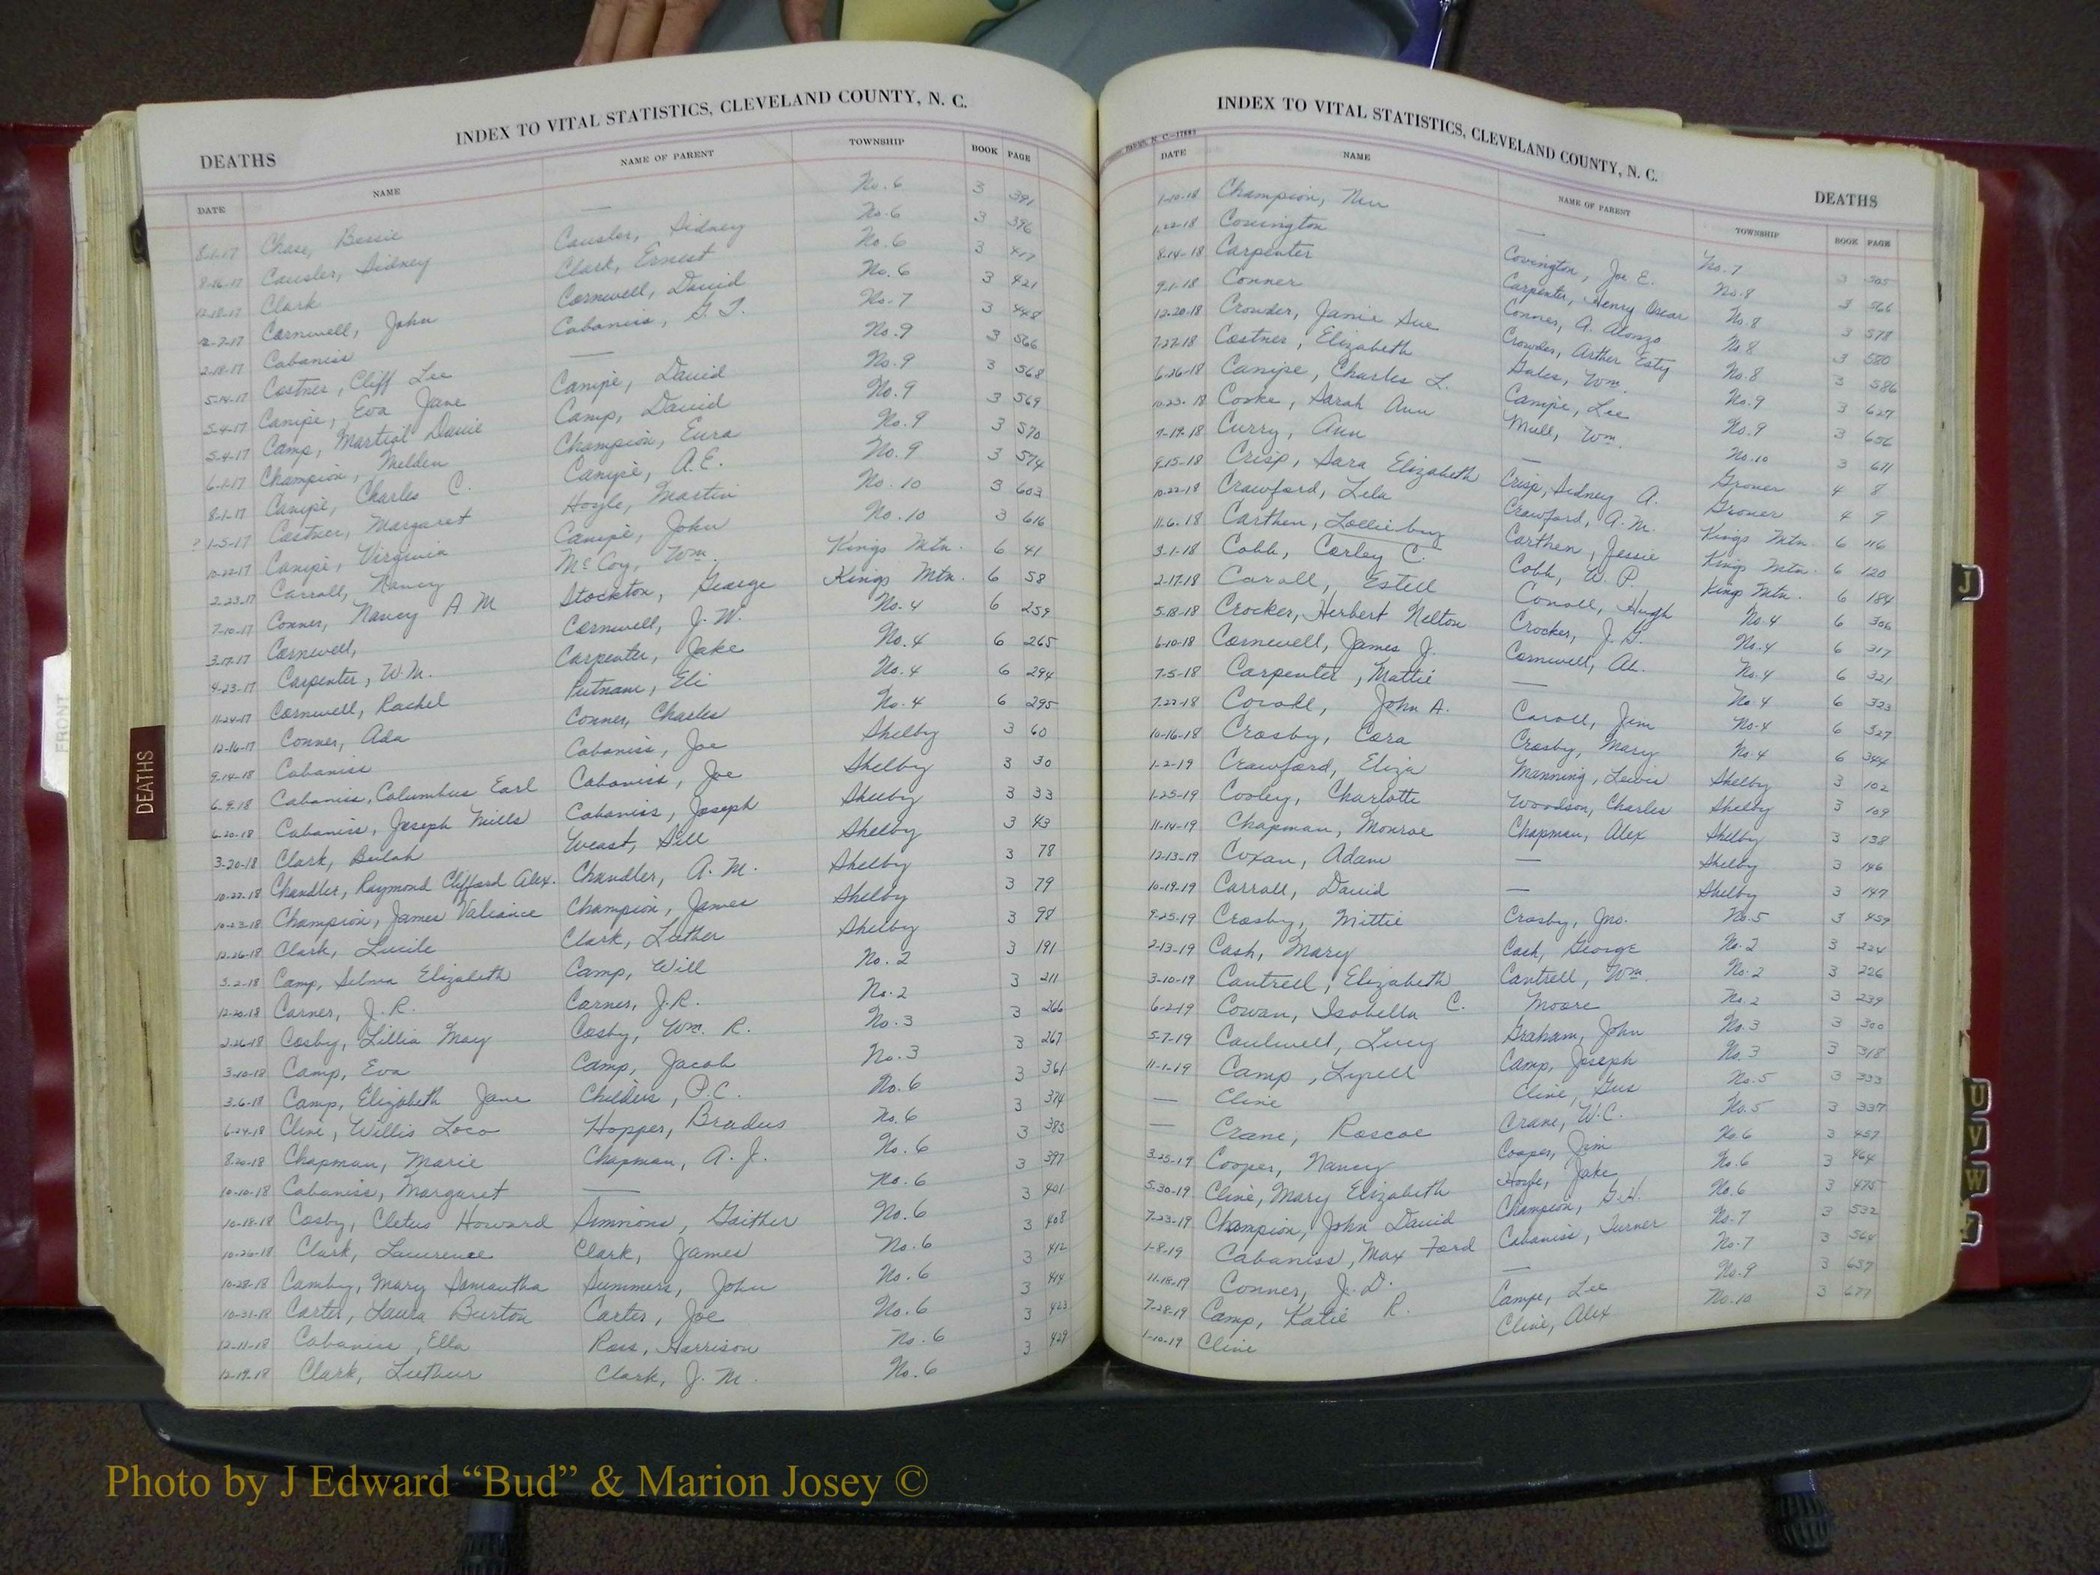 INDEX TO VITAL STATISTICS, CLEVELAND COUNTY, N. C.
DEATHS
DATE NAME NAME OF PARENT TOWNSHIP BOOK PAGE
8-1-17 Chase, Bessie — No. 6 3 391
8-16-17 Causler, Sidney Causler, Sidney No. 6 3 396
12-18-17 Clark Clark, Ernest No. 6 3 417
12-7-17 Cornwell, John Cornwell, David No. 6 3 421
2-18-17 Cabaniss Cabaniss, G. T. No. 7 3 448
5-14-17 Costner, Cliff Lee — No. 9 3 566
5-4-17 Canipe, Eva Jane Canipe, David No. 9 3 568
5-4-17 Camp, Martial Davie Camp, David No. 9 3 569
6-1-17 Champion, Melden Champion, Eura No. 9 3 570
8-1-17 Canipe, Charles C. Canipe, A. E. No. 9 3 574
? 1-5-17 Costner, Margaret Hoyle, Martin No. 10 3 603
10-22-17 Canipe, Virginia Canipe, John No. 10 3 616
2-23-17 Carroll, Nancy McCoy, Wm. Kings Mtn. 6 41
7-10-17 Conner, Nancy A M Stockton, George Kings Mtn. 6 58
3-17-17 Cornwell, Cornwell, J. W. No. 4 6 259
4-23-17 Carpenter, W. M. Carpenter, Jake No. 4 6 265
11-24-17 Cornwell, Rachel Putnam, Eli No. 4 6 294
12-16-17 Conner, Ada Conner, Charles No. 4 6 295
9-14-18 Cabaniss Cabaniss, Joe Shelby 3 60
6-9-18 Cabaniss, Columbus Earl Cabaniss, Joe Shelby 3 30
6-20-18 Cabaniss, Joseph Mills Cabaniss, Joseph Shelby 3 33
3-20-18 Clark, Beulah Weast, Shelby 3 43
10-22-18 Chandler, Raymond Clifford Alex. Chandler, A. M. Shelby 3 78
10-23-18 Champion, James Valiance Champion, James Shelby 3 79
12-26-18 Clark, Lucile Clark, Luther Shelby 3 98
3-2-18 Camp, Selma Elizabeth Camp, Will No. 2 3 191
12-20-18 Carner, J. R. Carner, J. R. No. 2 3 211
2-26-18 Cosby, Lillia May Cosby, Wm. R. No. 3 3 266
3-10-18 Camp, Eva Camp, Jacob No. 3 3 267
3-6-18 Camp, Elizabeth Jane Childers, P. C. No. 6 3 361
6-24-18 Cline, Willis Loco Hopper, Bradus No. 6 3 374
8-20-18 Chapman, Marie Chapman, A. J. No. 6 3 383
10-10-18 Cabaniss, Margaret — No. 6 3 397
10-18-18 Cosby, Cletus Howard Simmons, Gaither No. 6 3 401
10-26-18 Clark, Lawrence Clark, James No. 6 3 408
10-28-18 Camby, Mary Samantha Summers, John No. 6 3 412
10-31-18 Carter, Laura Burton Carter, Joe No. 6 3 414
12-11-18 Cabaniss, Ella Ross, Harrison No. 6 3 423
12-19-18 Clark, Luther Clark, J. M. No. 6 3 429
INDEX TO VITAL STATISTICS, CLEVELAND COUNTY, N. C.
DEATHS
DATE NAME NAME OF PARENT TOWNSHIP BOOK PAGE
1-10-18 Champion, — No. 7 3 505
1-22-18 Covington Covington, Joe E. No. 8 3 566
8-14-18 Carpenter Carpenter, Henry Oscar No. 8 3 578
9-1-18 Conner Conner, A. Alonzo No. 8 3 580
12-20-18 Crowder, Janie Sue Crowder, Arther Esty No. 8 3 586
7-27-18 Costner, Elizabeth Gales, Wm. No. 9 3 627
6-26-18 Canipe, Charles L. Canipe, Lee No. 9 3 656
10-23-18 Cooke, Sarah Ann Mull, Wm. No. 10 3 611
7-19-18 Curry, Ann — Grover 4 8
9-15-18 Crisp, Sara Elizabeth Crisp, Sidney A. Grover 4 9
10-22-18 Crawford, Lela Crawford, A. M. Kings Mtn. 6 116
11-6-18 Carthen, Lollie bury Carthen, Jessie Kings Mtn. 6 120
3-1-18 Cobb, Corley C. Cobb, W. P. King Mtn. 6 184
2-17-18 Caroll, Estell Conoll, Hugh No. 4 6 306
5-18-18 Crocker, Herbert Nelton Crocker, J. G. No. 4 6 317
6-10-18 Cornwell, James J. Cornwell, Al. No. 4 6 321
7-5-18 Carpenter, Mattie — No. 4 6 323
7-22-18 Coroll, John A. Caroll, Jim No. 4 6 327
10-16-18 Crosby, Cora Crosby, Mary No. 4 6 344
1-2-19 Crawford, Eliza Manning, Lewis Shelby 3 102
1-25-19 Cooley, Charlotte Woodson, Charles Shelby 3 109
11-14-19 Chapman, Monroe Chapman, Alex Shelby 3 138
12-13-19 Coxan, Adam — Shelby 3 146
10-19-19 Carroll, David — Shelby 3 147
9-25-19 Crosby, Mittie Crosby, Jno. No. 5 3 459
2-13-19 Cash, Mary Cash, George No. 2 3 224
3-10-19 Cantrell, Elizabeth Cantrell, Wm. No. 2 3 226
6-2-19 Cowan, Isabella C. Moore No. 2 3 239
5-7-19 Caulwell, Lucy Graham, John No. 3 3 300
11-1-19 Camp, Lyrell Camp, Joseph No. 3 3 318
— Cline Cline, Gus No. 5 3 333
— Crane, Roscoe Crane, W. C. No. 5 3 337
3-25-19 Cooper, Nancy Cooper, Jim No. 6 3 457
5-30-19 Cline, Mary Elizabeth Hoyle, Jake No. 6 3 464
7-23-19 Champion, John David Champion, G. H. No. 6 3 475
1-8-19 Cabaniss, Max Ford Cabaniss, Turner No. 7 3 532
11-18-19 Conner, J. D. — No. 7 3 564
7-28-19 Camp, Katie R. Campe, Lee No. 9 3 657
1-10-19 Cline Cline, Alex No. 10 3 677
DEATHS
FRONT
J
U
V
W
Photo by J Edward “Bud” & Marion Josey ©